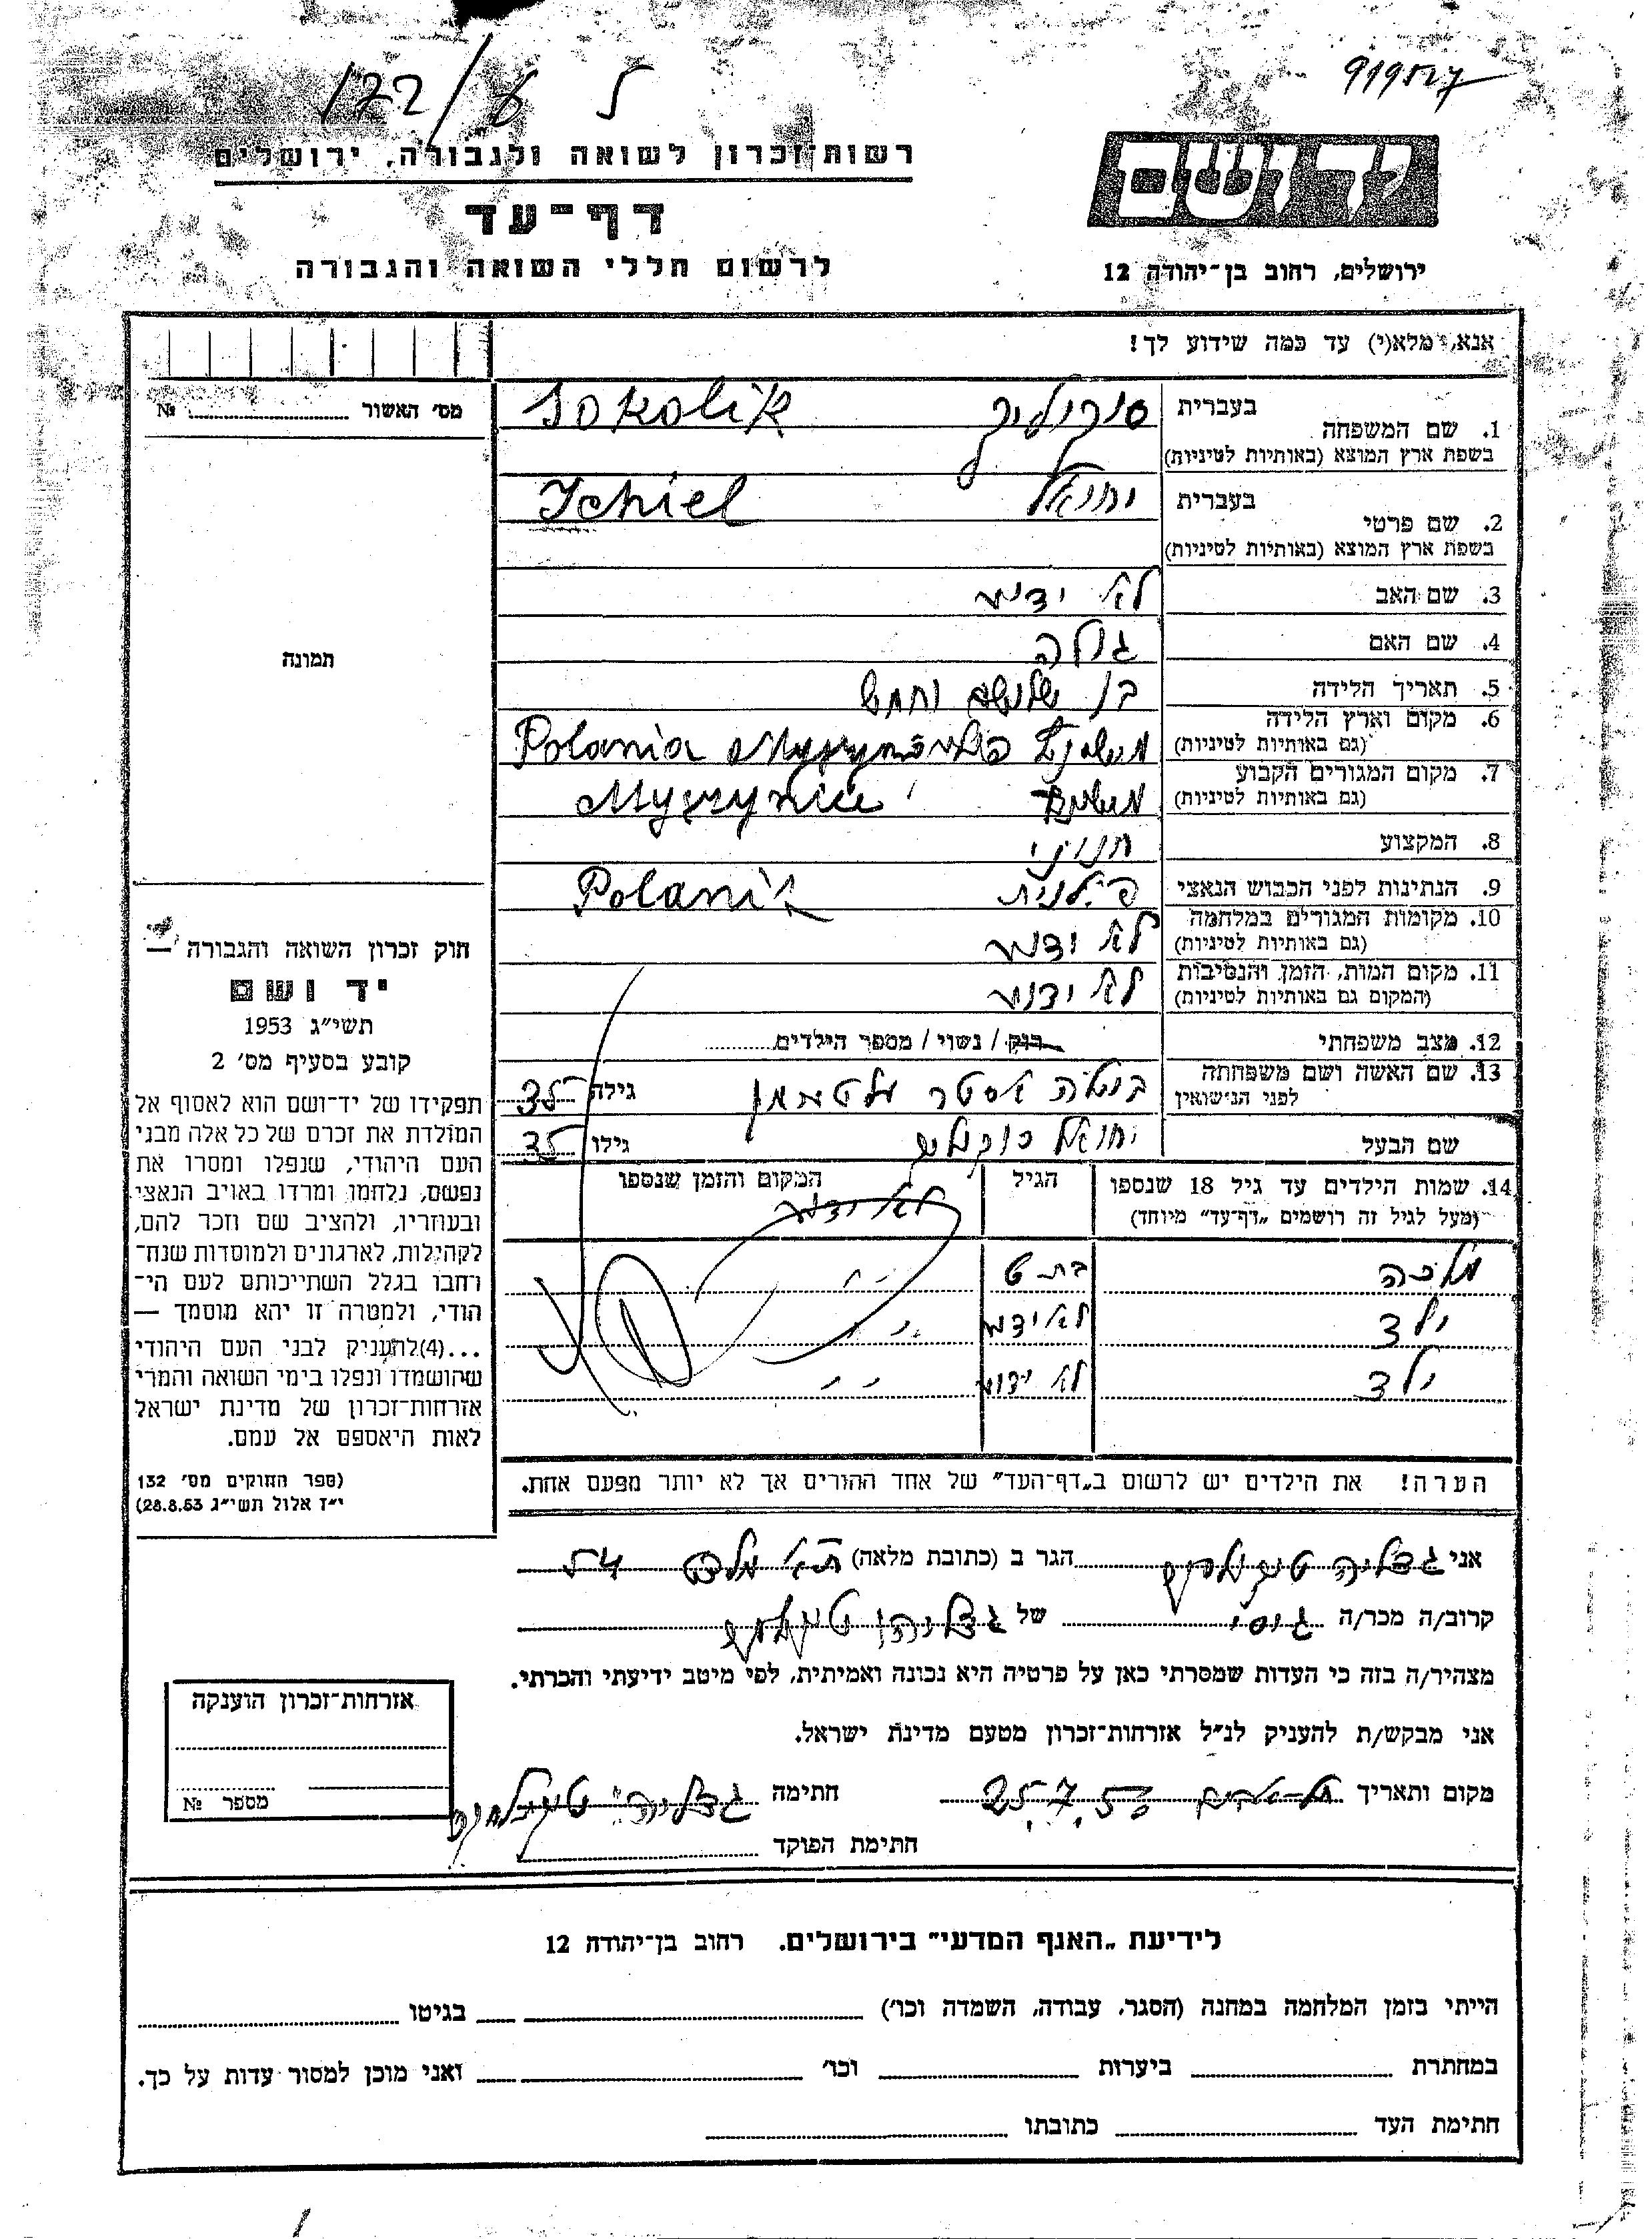 122/
919527
רשות־זכרון לשואה ולגבורה, ירושלים
דף־עד
לרשום חללי השואה והגבורה
יד ושם
ירושלים, רחוב בן־יהודה 12
אנא, מלא(י) עד כמה שידוע לך!
מס׳ האשור № 
תמונה
1. שם המשפחה
בעברית סוקוליק Sokolik
בשפת ארץ המוצא (באותיות לטיניות)
2. שם פרטי
בעברית יחיאל Ichiel
בשפת ארץ המוצא (באותיות לטיניות)
3. שם האב לא ידוע
4. שם האם גולה
5. תאריך הלידה בן שלושים וחמש
6. מקום וארץ הלידה Polania
(גם באותיות לטיניות)
7. מקום המגורים הקבוע
(גם באותיות לטיניות)
8. המקצוע חנוני
9. הנתינות לפני הכבוש הנאצי פולנית Polanik
10. מקומות המגורים במלחמה לא ידוע
(גם באותיות לטיניות)
11. מקום המות, הזמן והנסיבות לא ידוע
(המקום גם באותיות לטיניות)
12. מצב משפחתי רוק / נשוי / מספר הילדים
13. שם האשה ושם משפחתה
לפני הנישואין אסתר גילה 35
שם הבעל יחיאל סוקוליק גילו 35
14. שמות הילדים עד גיל 18 שנספו הגיל המקום והזמן שנספו
(מעל לגיל זה רושמים „דף־עד” מיוחד) לא ידוע
מלכה בת 9 ״
ילד לא ידוע ״
ילד לא ידוע ״
הערה! את הילדים יש לרשום ב„דף־העד” של אחד ההורים אך לא יותר מפעם אחת.
חוק זכרון השואה והגבורה —
יד ושם
תשי״ג 1953
קובע בסעיף מס׳ 2
תפקידו של יד־ושם הוא לאסוף אל
המולדת את זכרם של כל אלה מבני
העם היהודי, שנפלו ומסרו את
נפשם, נלחמו ומרדו באויב הנאצי
ובעוזריו, ולהציב שם וזכר להם,
לקהילות, לארגונים ולמוסדות שנח־
רחבו בגלל השתייכותם לעם הי־
הודי, ולמטרה זו יהא מוסמך —
...(4)להעניק לבני העם היהודי
שהושמדו ונפלו בימי השואה והמרי
אזרחות־זכרון של מדינת ישראל
לאות היאספם אל עמם.
(ספר החוקים מס׳ 132
י״ז אלול תשי״ג 28.8.53)
אני גדליה הגר ב (כתובת מלאה) ת״א 54
קרוב/ה מכר/ה גיסי של
מצהיר/ה בזה כי העדות שמסרתי כאן על פרטיה היא נכונה ואמיתית, לפי מיטב ידיעתי והכרתי.
אני מבקש/ת להעניק לנ״ל אזרחות־זכרון מטעם מדינת ישראל.
מקום ותאריך תל-אביב 25.7. חתימה גדליה
חתימת הפוקד
אזרחות־זכרון הוענקה
מספר №
לידיעת „האנף המדעי” בירושלים. רחוב בן־יהודה 12
הייתי בזמן המלחמה במחנה (הסגר, עבודה, השמדה וכו׳) בגיטו
במחתרת ביערות וכו׳ ואני מוכן למסור עדות על כך.
חתימת העד כתובתו